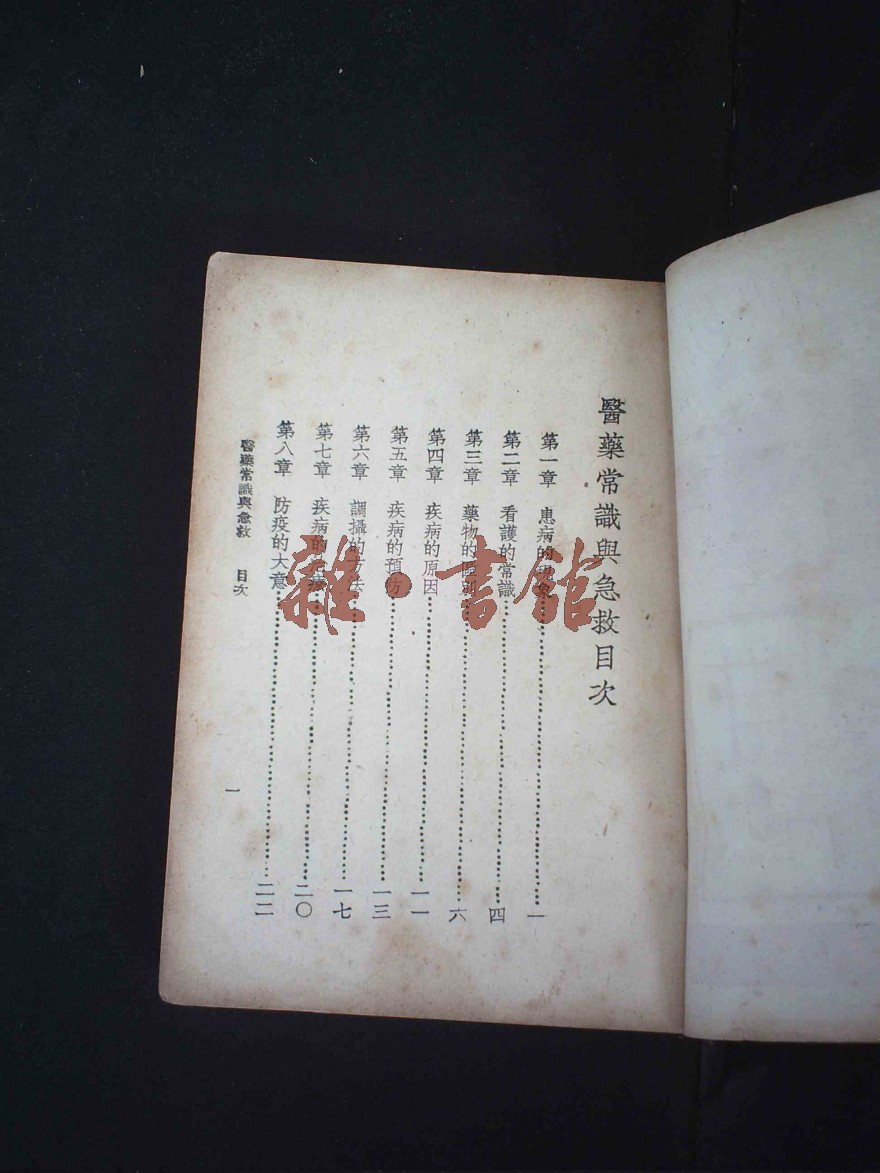 醫藥常識與急救目次
第一章 患病的……一
第二章 看護的常識……四
第三章 藥物的區別……六
第四章 疾病的原因……一一
第五章 疾病的預防……一三
第六章 調攝的方法……一七
第七章 疾病的……二〇
第八章 防疫的大意……二二
醫藥常識與急救 目次
一
雜·書館